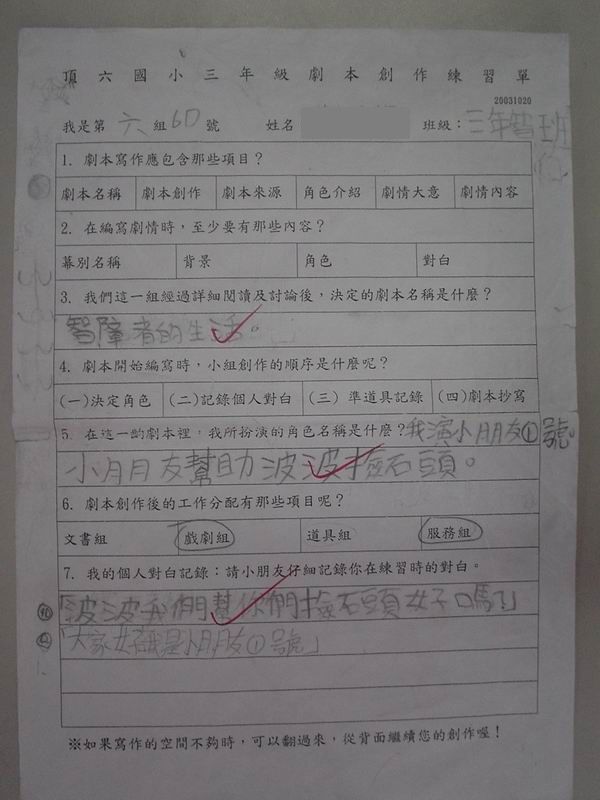 頂六國小三年級劇本創作練習單
20031020
我是第六組6D號 姓名 班級：三年智班
1. 劇本寫作應包含那些項目？
劇本名稱 劇本創作 劇本來源 角色介紹 劇情大意 劇情內容
2. 在編寫劇情時，至少要有那些內容？
幕別名稱 背景 角色 對白
3. 我們這一組經過詳細閱讀及討論後，決定的劇本名稱是什麼？
智障者的生活。
4. 劇本開始編寫時，小組創作的順序是什麼呢？
(一)決定角色 (二)記錄個人對白 (三) 準道具記錄 (四)劇本抄寫
5. 在這一齣劇本裡，我所扮演的角色名稱是什麼？我演小朋友①號。
小朋友幫助波波撿石頭。
6. 劇本創作後的工作分配有那些項目呢？
文書組 戲劇組 道具組 服務組
7. 我的個人對白記錄：請小朋友仔細記錄你在練習時的對白。
「波波我們幫你們撿石頭好嗎？」
「大家好我是小朋友①號」
※如果寫作的空間不夠時，可以翻過來，從背面繼續您的創作喔！